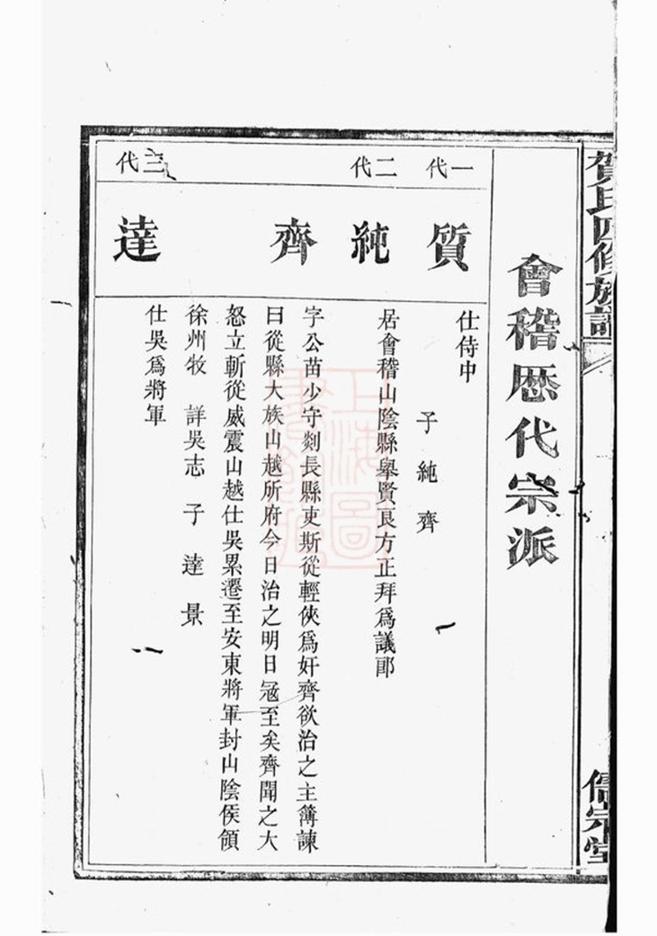 賀氏四修族譜
儒宗堂
會稽歷代宗派
一代
質
仕侍中
子純齊
二代
純
居會稽山陰縣舉賢良方正拜爲議郎
齊
字公苗少守剡長縣吏斯從輕俠爲奸齊欲治之主簿諫
曰從縣大族山越所府今日治之明日冦至矣齊聞之大
怒立斬從威震山越仕吳累遷至安東將軍封山陰侯領
徐州牧 詳吳志 子達景
三代
達
仕吳爲將軍
上海圖書館藏